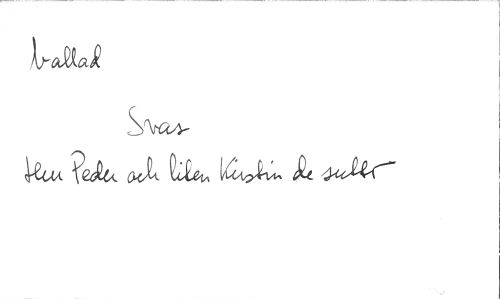 ballad
Svar
Herr Peder och liten Kirstin de sutto